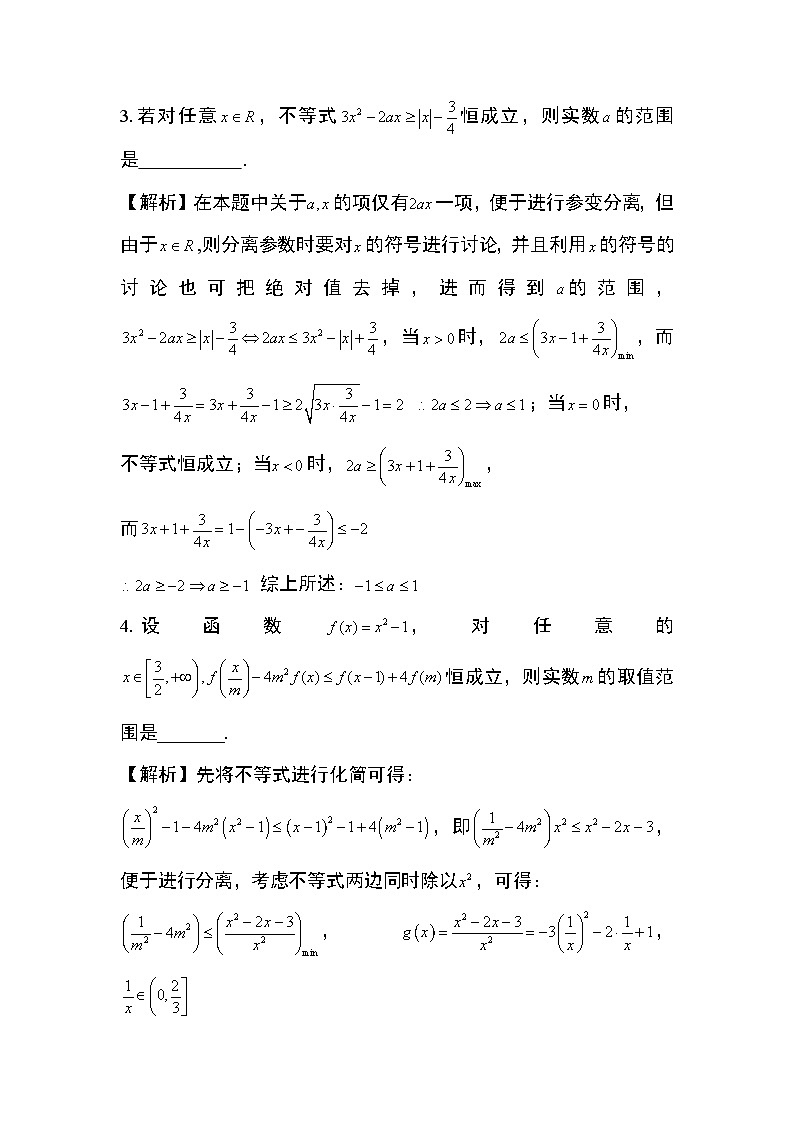 3.若对任意 x ∈ R，不等式 3x² − 2ax ≥ |x| − 3/4 恒成立，则实数 a 的范围
是___________.
【解析】在本题中关于a,x 的项仅有2ax 一项，便于进行参变分离，但
由于 x ∈ R ,则分离参数时要对x 的符号进行讨论，并且利用 x 的符号的
讨论也可把绝对值去掉，进而得到 a 的范围，
3x² − 2ax ≥ |x| − 3/4 ⇔ 2ax ≤ 3x² − |x| + 3/4，当 x > 0 时，2a ≤ (3x − 1 + 3/(4x))min，而
3x − 1 + 3/(4x) = 3x + 3/(4x) − 1 ≥ 2√(3x · 3/(4x)) − 1 = 2 ∴ 2a ≤ 2 ⇒ a ≤ 1；当 x = 0 时，
不等式恒成立；当 x < 0 时，2a ≥ (3x + 1 + 3/(4x))max，
而 3x + 1 + 3/(4x) = 1 − (−3x + − 3/(4x)) ≤ −2
∴ 2a ≥ −2 ⇒ a ≥ −1 综上所述：−1 ≤ a ≤ 1
4.设函数 f(x) = x² − 1，对任意的
x ∈ [3/2, +∞), f(x/m) − 4m² f(x) ≤ f(x − 1) + 4f(m) 恒成立，则实数 m 的取值范
围是_______.
【解析】先将不等式进行化简可得：
(x/m)² − 1 − 4m²(x² − 1) ≤ (x − 1)² − 1 + 4(m² − 1)，即 (1/m² − 4m²)x² ≤ x² − 2x − 3，
便于进行分离，考虑不等式两边同时除以x²，可得：
(1/m² − 4m²) ≤ ((x² − 2x − 3)/x²)min， g(x) = (x² − 2x − 3)/x² = −3(1/x)² − 2 · 1/x + 1，
1/x ∈ (0, 2/3]